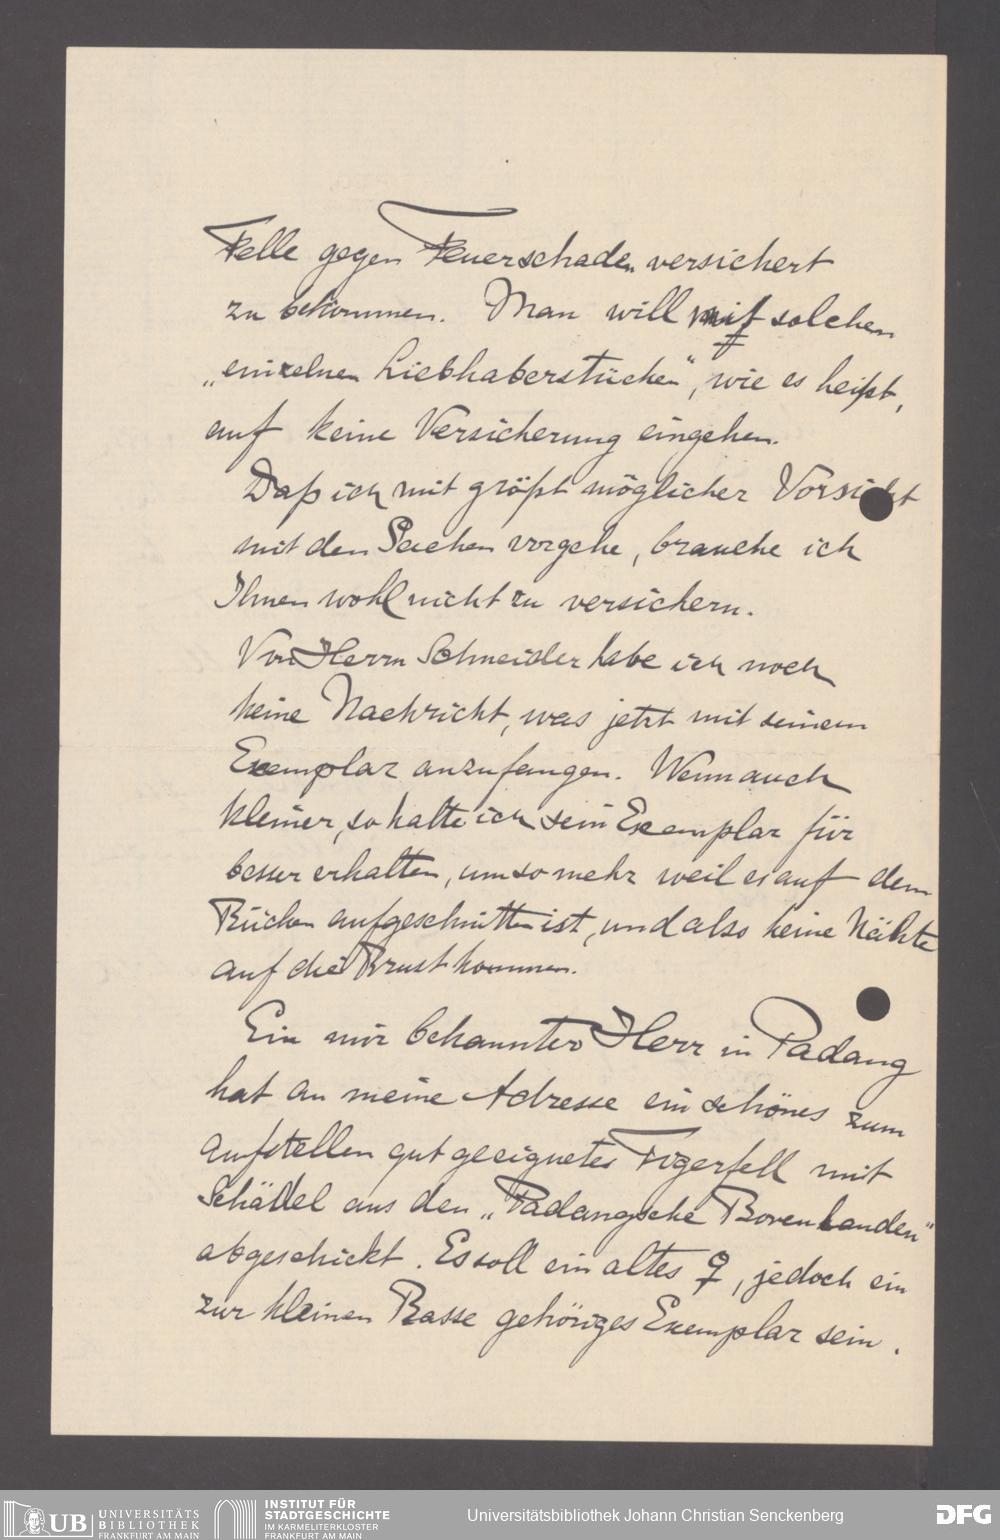 Felle gegen Feuerschaden versichert
zu bekommen. Man will mit solchen
„einzelnen Liebhaberstücken“, wie es heißt,
auf keine Versicherung eingehen.
Daß ich mit größt möglicher Vorsicht
mit den Sachen vorgehe, brauche ich
Ihnen wohl nicht zu versichern.
Von Herrn Schneider habe ich noch
keine Nachricht, was jetzt mit seinem
Exemplar anzufangen. Wenn auch
kleiner, so halte ich sein Exemplar für
besser erhalten, umso mehr weil es auf dem
Rücken aufgeschnitten ist, und also keine Nähte
auf die Brust kommen.
Ein mir bekannter Herr in Padang
hat an meine Adresse ein schönes zum
aufstellen gut geeignetes Tigerfell mit
Schädel aus den „Padangsche Bovenlanden“
abgeschickt. Es soll ein altes ♀, jedoch ein
zur kleinen Rasse gehöriges Exemplar sein.
UB UNIVERSITÄTS
BIBLIOTHEK
FRANKFURT AM MAIN
INSTITUT FÜR
STADTGESCHICHTE
IM KARMELITERKLOSTER
FRANKFURT AM MAIN
Universitätsbibliothek Johann Christian Senckenberg
DFG